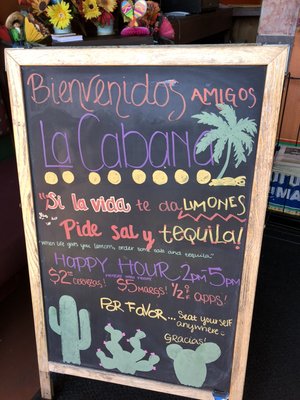 Bienvenidos AMIGOS
La Cabana
"Si la vida te da LIMONES
Pide sal y tequila!
"when life gives you lemons, order some salt and tequila"
HAPPY HOUR 2pm-5pm
MONDAY thru FRIDAY
$2⁵⁰ CERVEZAS! $5 MARGS! 1/2 off APPS!
Por Favor... Seat yourSELF
anywhere
Gracias!